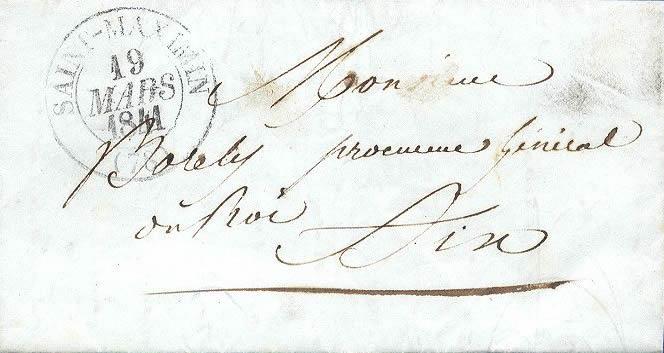 SAINT-MAXIMIN
19
MARS
1841
(78)
Monsieur
Borely procureur Général
du Roi
Aix